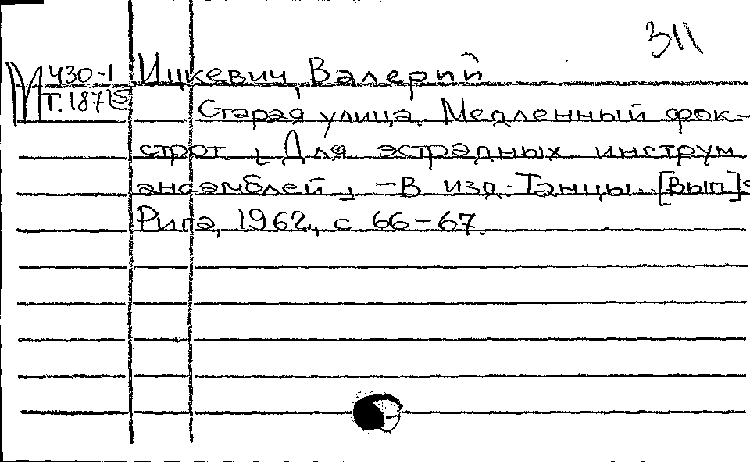 311
М Ч30-1 Ицкевич, Валерий
Т.187 Старая улица. Медленный фок-
строт. Для эстрадных инструм.
ансамблей, -В изд. Танцы. [Вып]
Рига, 1962, с 66-67.